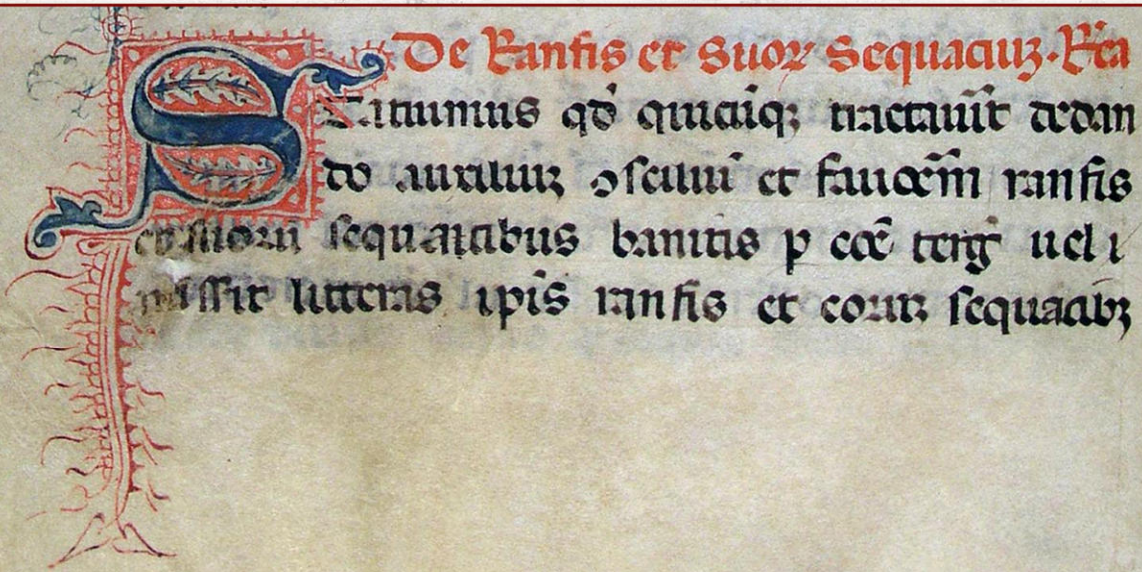 De Ranfis et Suoꝝ Sequaciuꝫ. Rᷓca
STatuimus qđ quicūqꝫ tractauīt dedan
do auxiliuꝫ ꝯsciliuȝ et fauoꝛē̃m ranfis
et suoꝛū sequacibus banitis ꝑ cōe terg̃ uel i
missit litteras ip̄is ranfis et eoꝛuꝫ sequacibꝫ